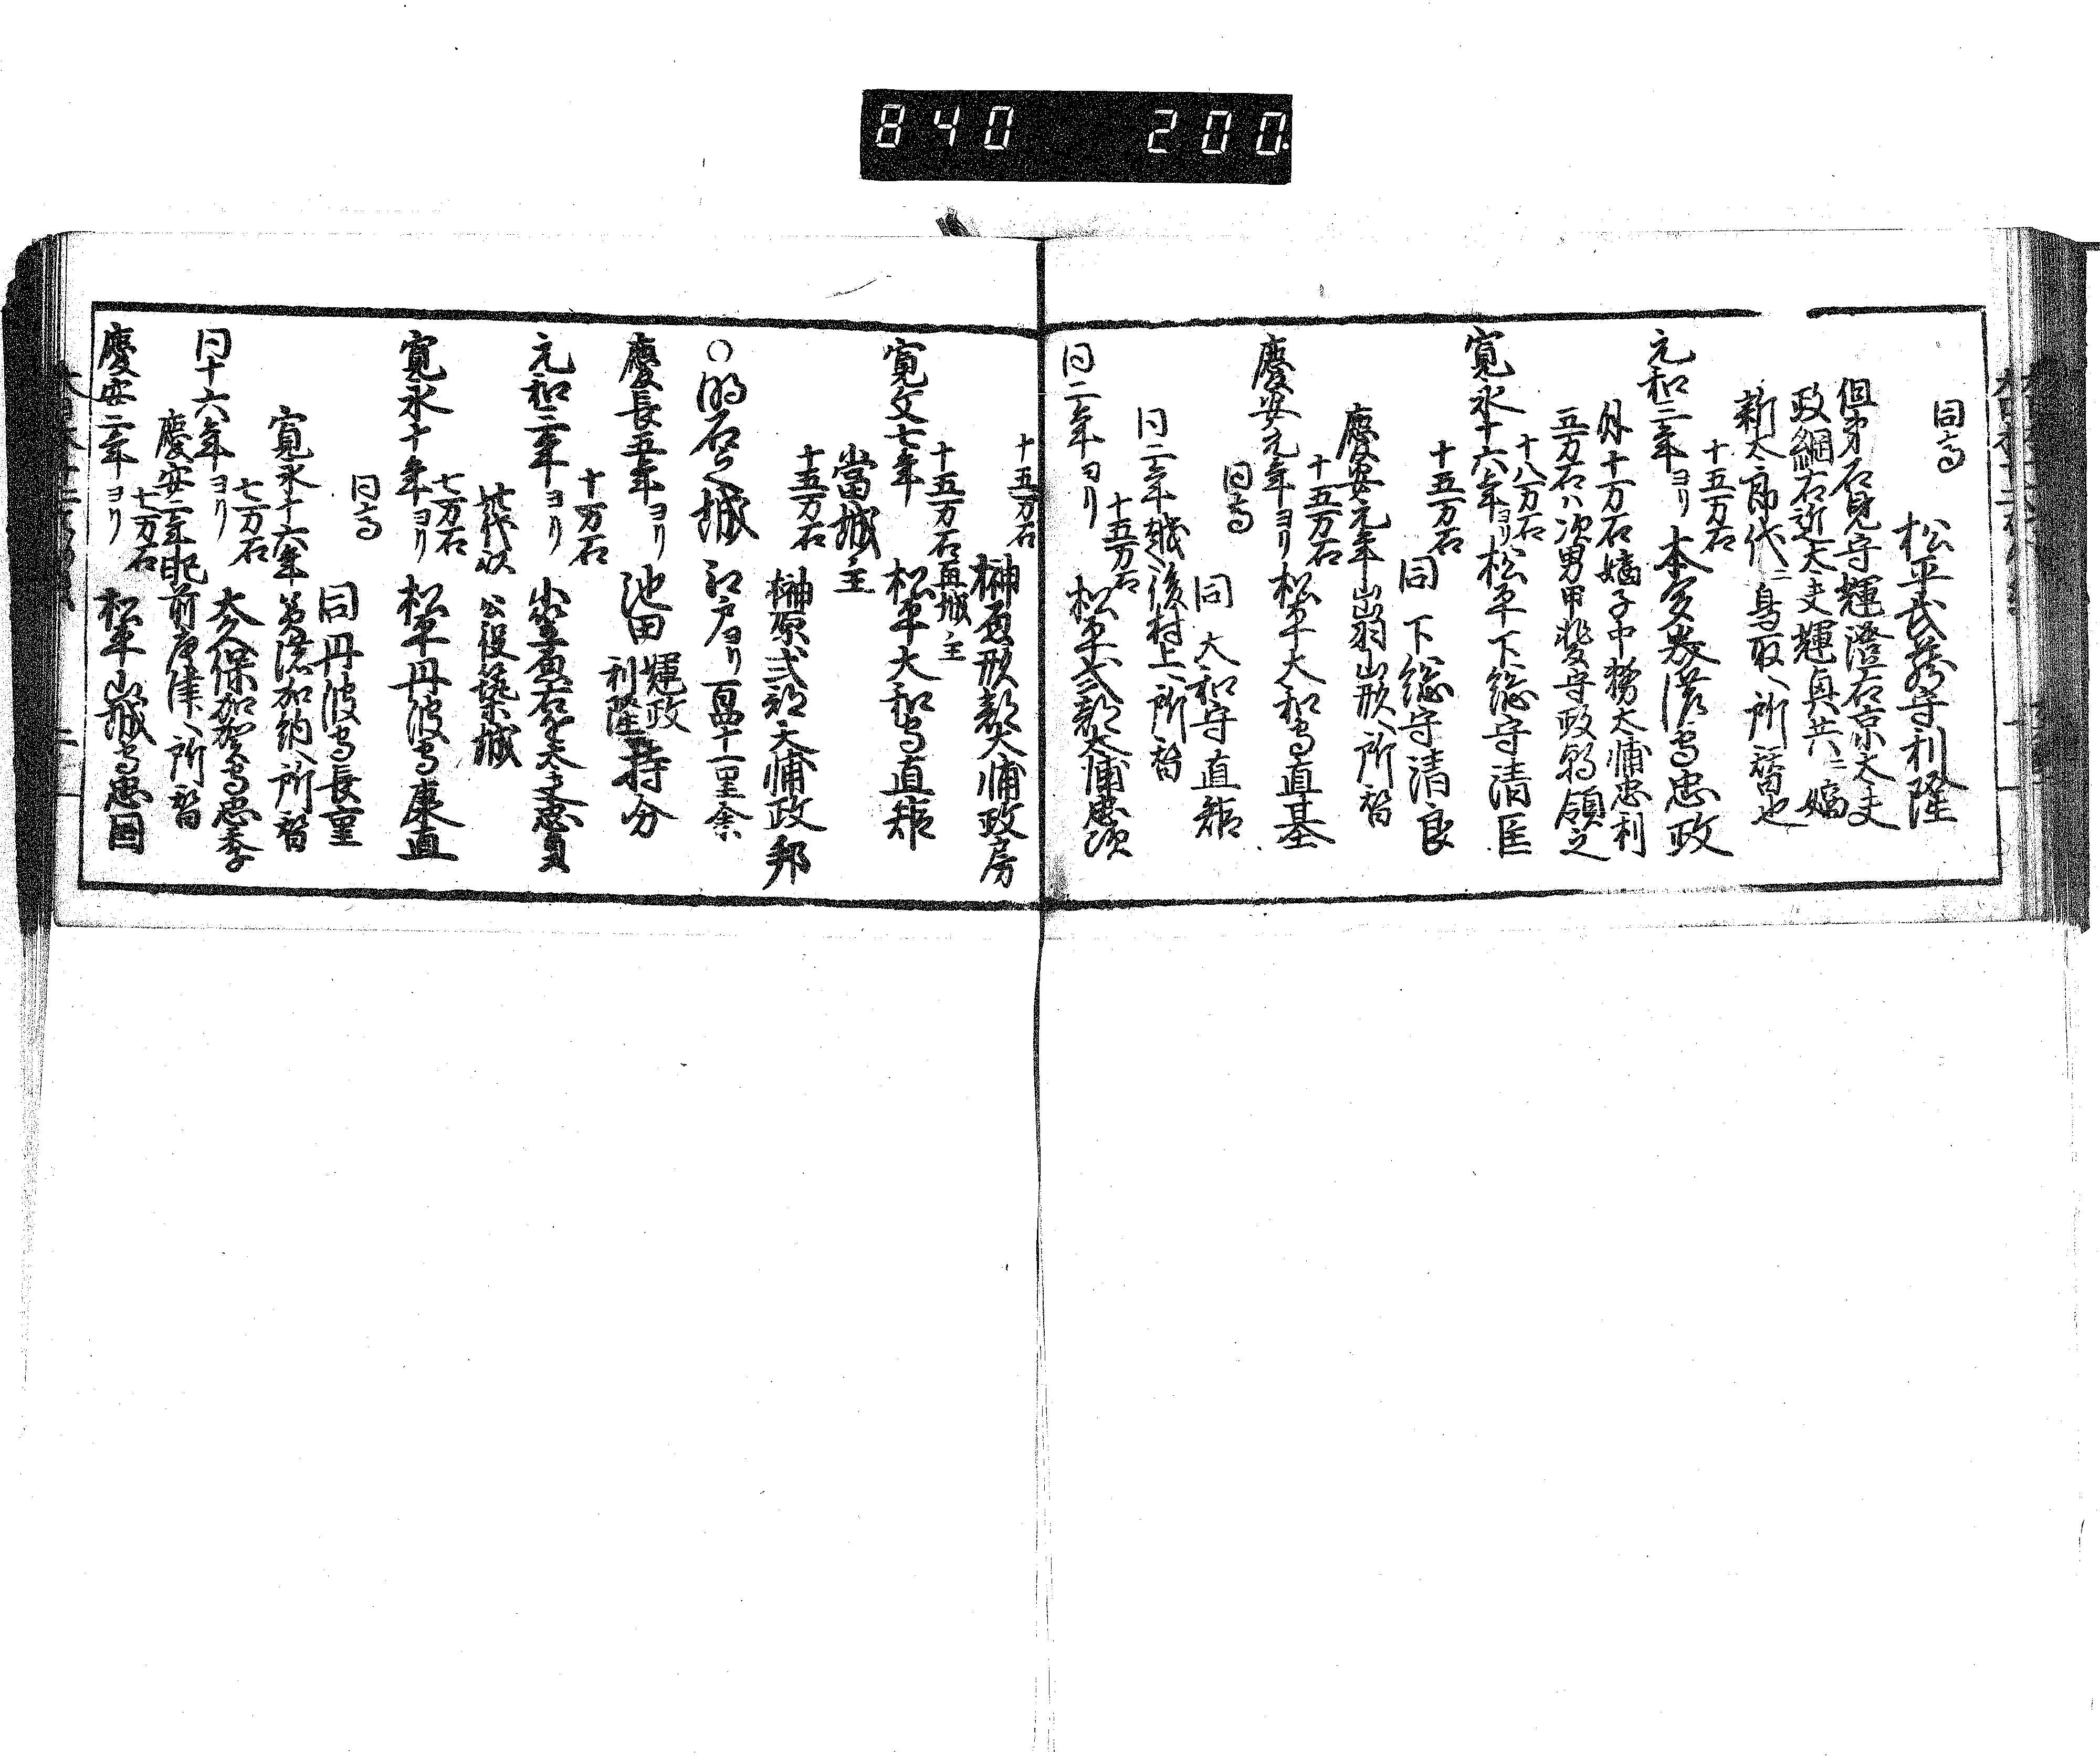 840 200.
同高
松平武蔵守利隆
但弟石見守輝澄右京大夫
政綱右近大夫輝興共ニ嫡
新太郎代ニ鳥取ヘ所替也
十五万石
元和三年ヨリ 本多美濃守忠政
外十万石嫡子中務大輔忠利
五万石ハ次男甲斐守政朝領之
十八万石
寛永十六年ヨリ 松平下総守清匡
十五万石
同 下総守清良
慶安元年出羽山形ヘ所替
十五万石
慶安元年ヨリ 松平大和守直基
同高
同 大和守直矩
同二年越後村上ヘ所替
十五万石
同二年ヨリ 松平式部大輔忠次
十五万石
榊原刑部大輔政房
十五万石直城主
寛文七年 松平大和守直矩
當城主
十五万石
榊原式部大輔政邦
〇明石之城 江戸ヨリ百四十一里余
慶長五年ヨリ 池田 輝政 利隆 持分
十万石
元和三年ヨリ 小笠原右近太夫忠真
此代以 公役築城
七万石
寛永十年ヨリ 松平丹波守康直
同高
同 丹波守長重
寛永十六年 美濃加納ヘ所替
七万石
同十六年ヨリ 大久保加賀守忠季
慶安二年肥前唐津ヘ所替
七万石
慶安二年ヨリ 松平山城守忠国